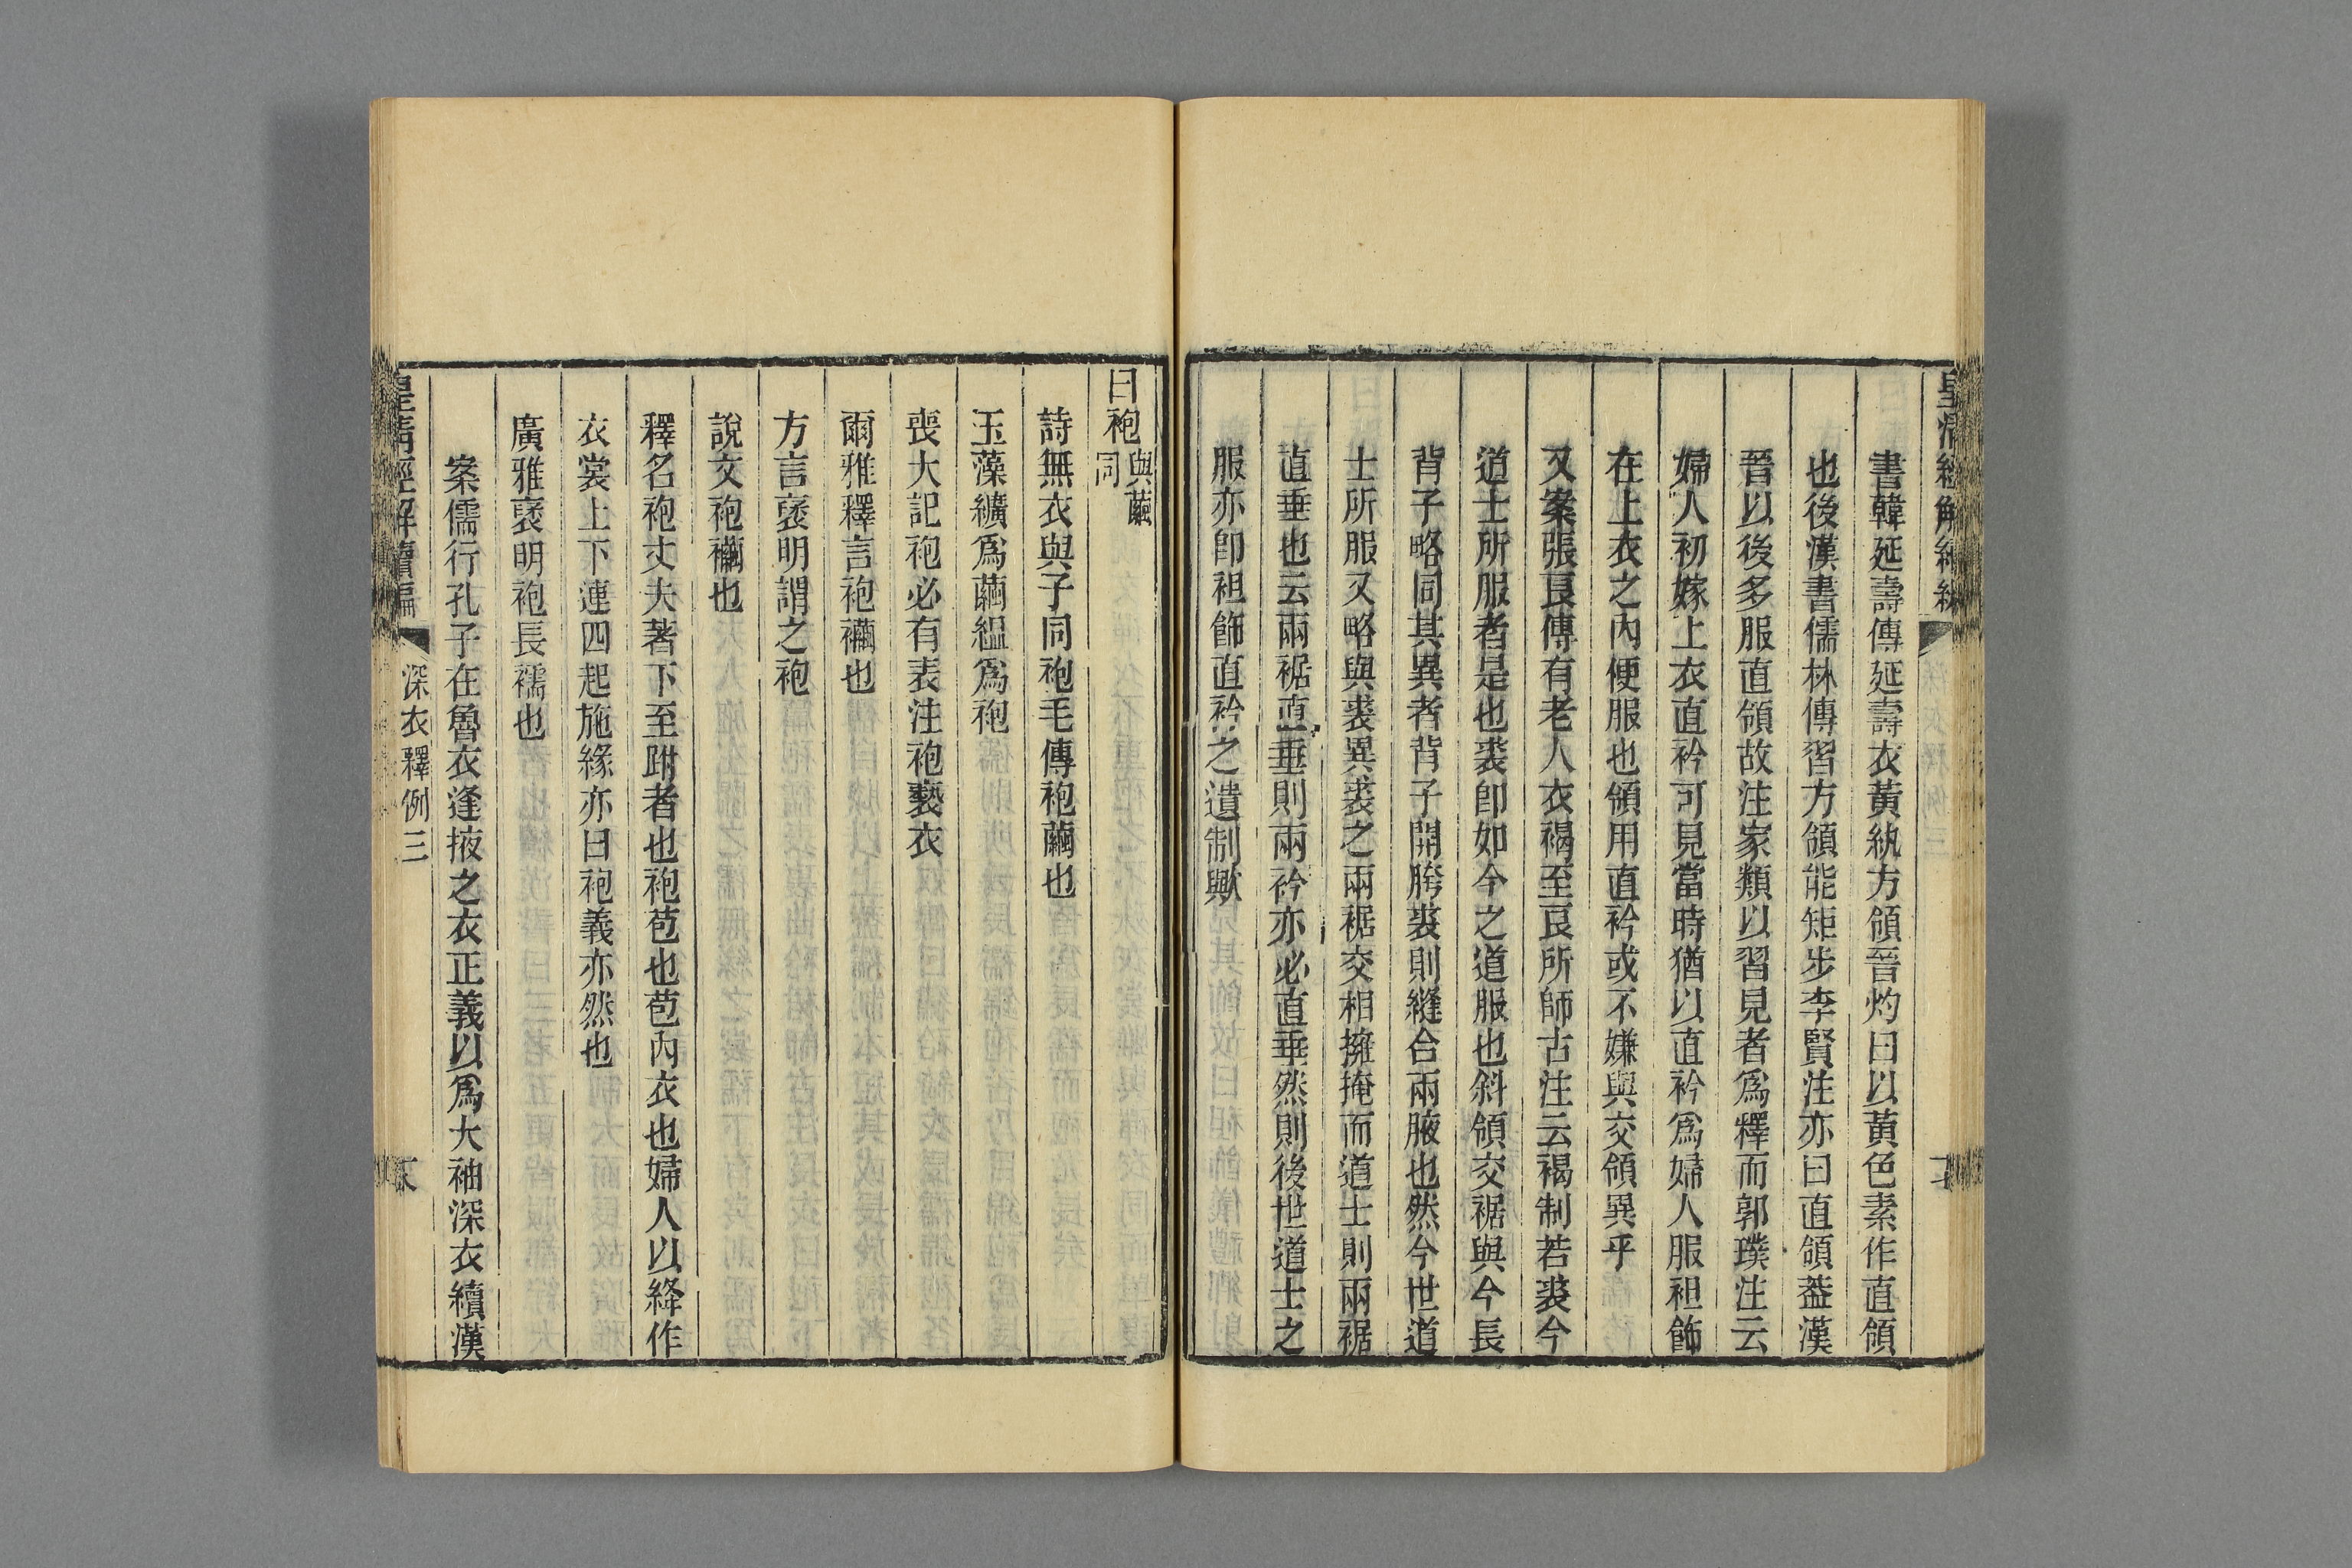 皇清經解續編
書韓延壽傳延壽衣黃紈方領晉灼曰以黃色素作直領
也後漢書儒林傳習方領能矩步李賢注亦曰直領葢漢
晉以後多服直領故注家類以習見者爲釋而郭璞注云
婦人初嫁上衣直衿可見當時猶以直衿爲婦人服袒飾
在上衣之內便服也領用直衿或不嫌與交領異乎
又案張良傳有老人衣褐至良所師古注云褐制若裘今
道士所服者是也裘卽如今之道服也斜領交裾與今長
背子略同其異者背子開胯裘則縫合兩腋也然今世道
士所服又略與裘異裘之兩裾交相擁掩而道士則兩裾
直垂也云兩裾直垂則兩衿亦必直垂然則後世道士之
服亦卽袒飾直衿之遺制歟
曰袍與繭同
詩無衣與子同袍毛傳袍繭也
玉藻纊爲繭縕爲袍
喪大記袍必有表注袍褻衣
爾雅釋言袍襺也
方言褒明謂之袍
說文袍襺也
釋名袍丈夫著下至跗者也袍苞也苞內衣也婦人以絳作
衣裳上下連四起施緣亦曰袍義亦然也
廣雅褒明袍長襦也
案儒行孔子在魯衣逢掖之衣正義以爲大袖深衣續漢
皇清經解續編 深衣釋例三